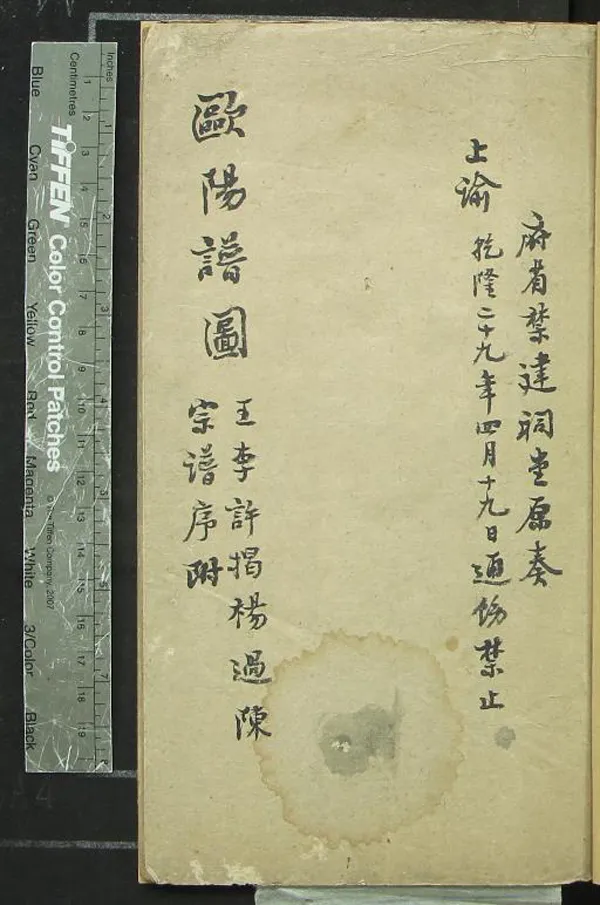 府省禁建祠堂原奏
上谕 乾隆二十九年四月十九日通飭禁止
歐陽譜圖
王李許揭楊過陳
宗譜序附
Inches
Centimetres
TIFFEN Color Control Patches
© The Tiffen Company, 2007
Blue Cyan Green Yellow Red Magenta White 3/Color Black
1 2 3 4 5 6 7
1 2 3 4 5 6 7 8 9 10 11 12 13 14 15 16 17 18 19